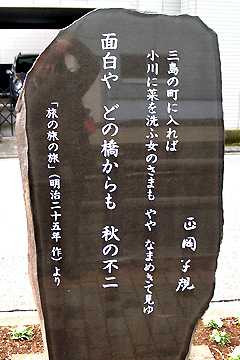 三島の町に入れば
小川に菜を洗ふ女のさまも やや なまめきて見ゆ
正岡子規
面白や どの橋からも 秋の不二
「旅の旅の旅」(明治二十五年 作)より